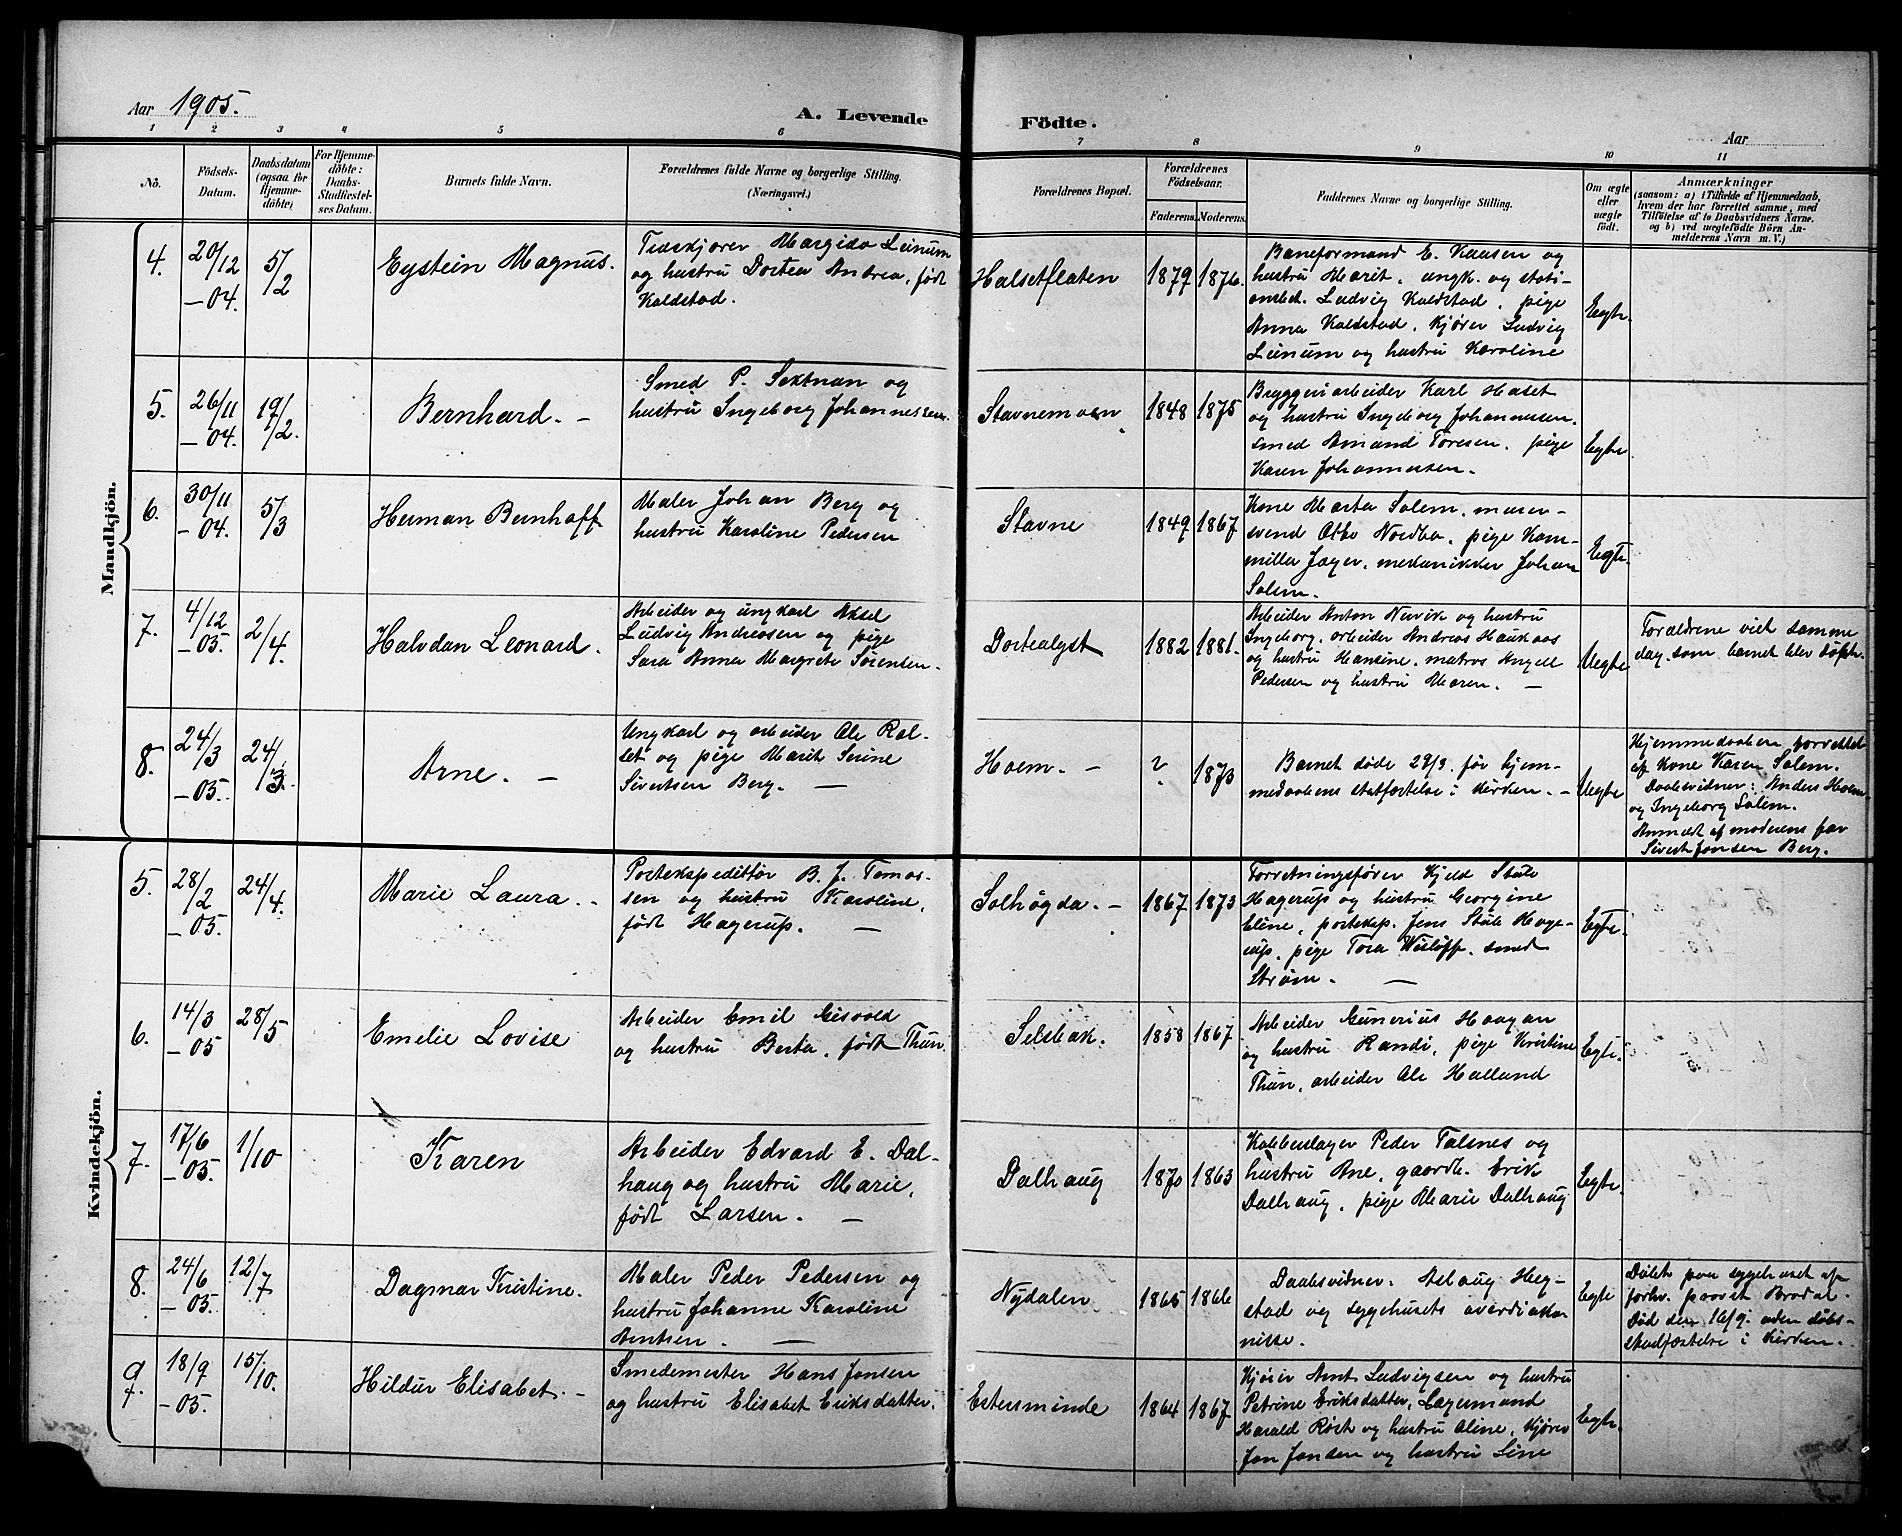 Aar 1905.
A. Levende Födte.
Aar
1 2 3 4 5 6 7 8 9 10 11
No.
Födsels-
Datum.
Daabsdatum
(ogsaa for
Hjemme-
döbte)
For Hjemme-
döbte:
Daabs-
Stadfæstel-
ses Datum.
Barnets fulde Navn.
Forældrenes fulde Navne og borgerlige Stilling.
(Næringsvei.)
Forældrenes Bopæl.
Forældrenes
Födselsaar.
Faderens.
Moderens.
Faddernes Navne og borgerlige Stilling.
Om ægte
eller
uægte
födt.
Anmærkninger
(saasom: a) i Tilfælde af Hjemmedaab,
hvem der har forrettet samme, med
Tilföielse af to Daabsvidners Navne,
og b) ved uægtefödte Börn An-
melderens Navn m. V.)
Mandkjön.
4.
20/12
-04.
5/2
Eystein Magnus.
Tidskjører Margido Leinum
og hustru Dortea Andrea, født
Kaldstad.
Halsetflaten
1879
1876.
Baneformand E. Kaasen og
hustru Marit, ungk. og stati-
onsbet. Ludvig Kaldstad, pige
Anna Kaldstad, kjører Ludvig
Leinum og hustru Karoline
Egte.
5.
26/11
-04.
19/2.
Bernhard. -
Smed P. Sextnan og
hustru Ingeborg Johannessen.
Stavnemoen
1848
1875
Bryggeriarbeider Karl Haset
og hustru Ingeborg Johannesen.
smed Amand Toresen, pige
Karen Johannesen.
Egte.
6.
30/11
-04.
5/3
Herman Bernhoff
Maler Johan Berg og
hustru Karoline Pedersen
Stavne
1849
1867
Kone Marta Solem, murer-
svend Otto Nordbo, pige Kam-
milla Jæger, mekanikker Johan
Solem.
Egte.
7.
4/12
-05.
2/4.
Halvdan Leonard.
Arbeider og ungkarl Aksel
Ludvig Andreasen og pige
Sara Anna Margrete Sørensen.
Dortealyst
1882
1881.
Arbeider Anton Nervik og hustru
Ingeborg, arbeider Andreas Haukaas
og hustru Hansine, matros Angell
Pedersen og hustru Maren. -
Uegte
Forældrene viet samme
dag, som barnet blev døbt.
8.
24/3
-05.
24/3.
Arne. -
Ungkarl og arbeider Ole Ral-
let og pige Marit Serine
Sivertsen Berg. -
Hoem. -
?
1873
Barnet døde 29/3. før hjem-
medaabens statfæstelse i kirken. -
Uegte
Hjemmedaaben forrettet
af kone Karen Solem.
Daabsvidner: Anders Hoem
og Ingeborg Solem.
Anmeldt af moderens far
Sivert Jonsen Berg.
Kvindekjön.
5.
28/2
-05.
24/4.
Marie Laura. -
Postekspeditør B. J. Tomas-
sen og hustru Karoline,
født Hagerup. -
Solhøgda. -
1867
1873
Forretningsfører Kjeld Stub
Hagerup og hustru Georgine
Eline, posteksp. Jens Stub Hage-
rup, pige Tora Wisløff, smed
Strøm. -
Egte.
6.
14/3
-05
28/5
Emelie Lovise
Arbeider Emil Eisvold
og hustru Berta, født Thun.
Selsbak.
1858
1867
Arbeider Gunerius Haagan
og hustru Randi, pige Kristine
Thun, arbeider Ole Halland
Egte.
7.
17/6
-05.
1/10
Karen
Arbeider Edvard E. Dal-
haug og hustru Marie,
født Larsen. -
Dalhaug
1870
1863
Kobberslager Peder Talsnes og
hustru Ane, gaardb. Erik
Dalhaug, pige Marie Dalhaug
Egte.
8.
24/6
-05.
12/7
Dagmar Kristine.
Maler Peder Pedersen og
hustru Johanne Karoline
Arntsen. -
Nydalen
1865
1866
Daabsvidner. Aslaug Heg-
stad og sygehusets overdiako-
nisse.
Egte
Døbt paa sygehuset af
forhv. provst Brodal.
Død den 16/9. uden døbs-
stadfæstelse i kirken.
9.
18/9
-05.
15/10.
Hildur Elisabet. -
Smedemester Hans Jonsen
og hustru Elisabet Eriksdatter.
Estersminde
1864
1867
Kjører Arnt Ludvigsen og hustru
Petrine Eriksdatter, Lagermand
Harald Røst og hustru Oline, kjører
Jon Jonsen og hustru Line
Egte.